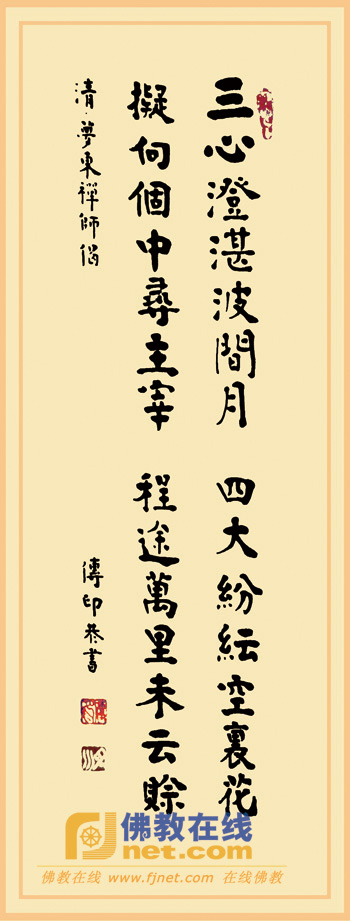 三心澄湛波間月 四大紛紜空裏花
擬向個中尋主宰 程途萬里未云賒
清·夢東禪師偈
傳印恭書
佛教在线
fjnet.com
佛教在线 www.fjnet.com 在线佛教